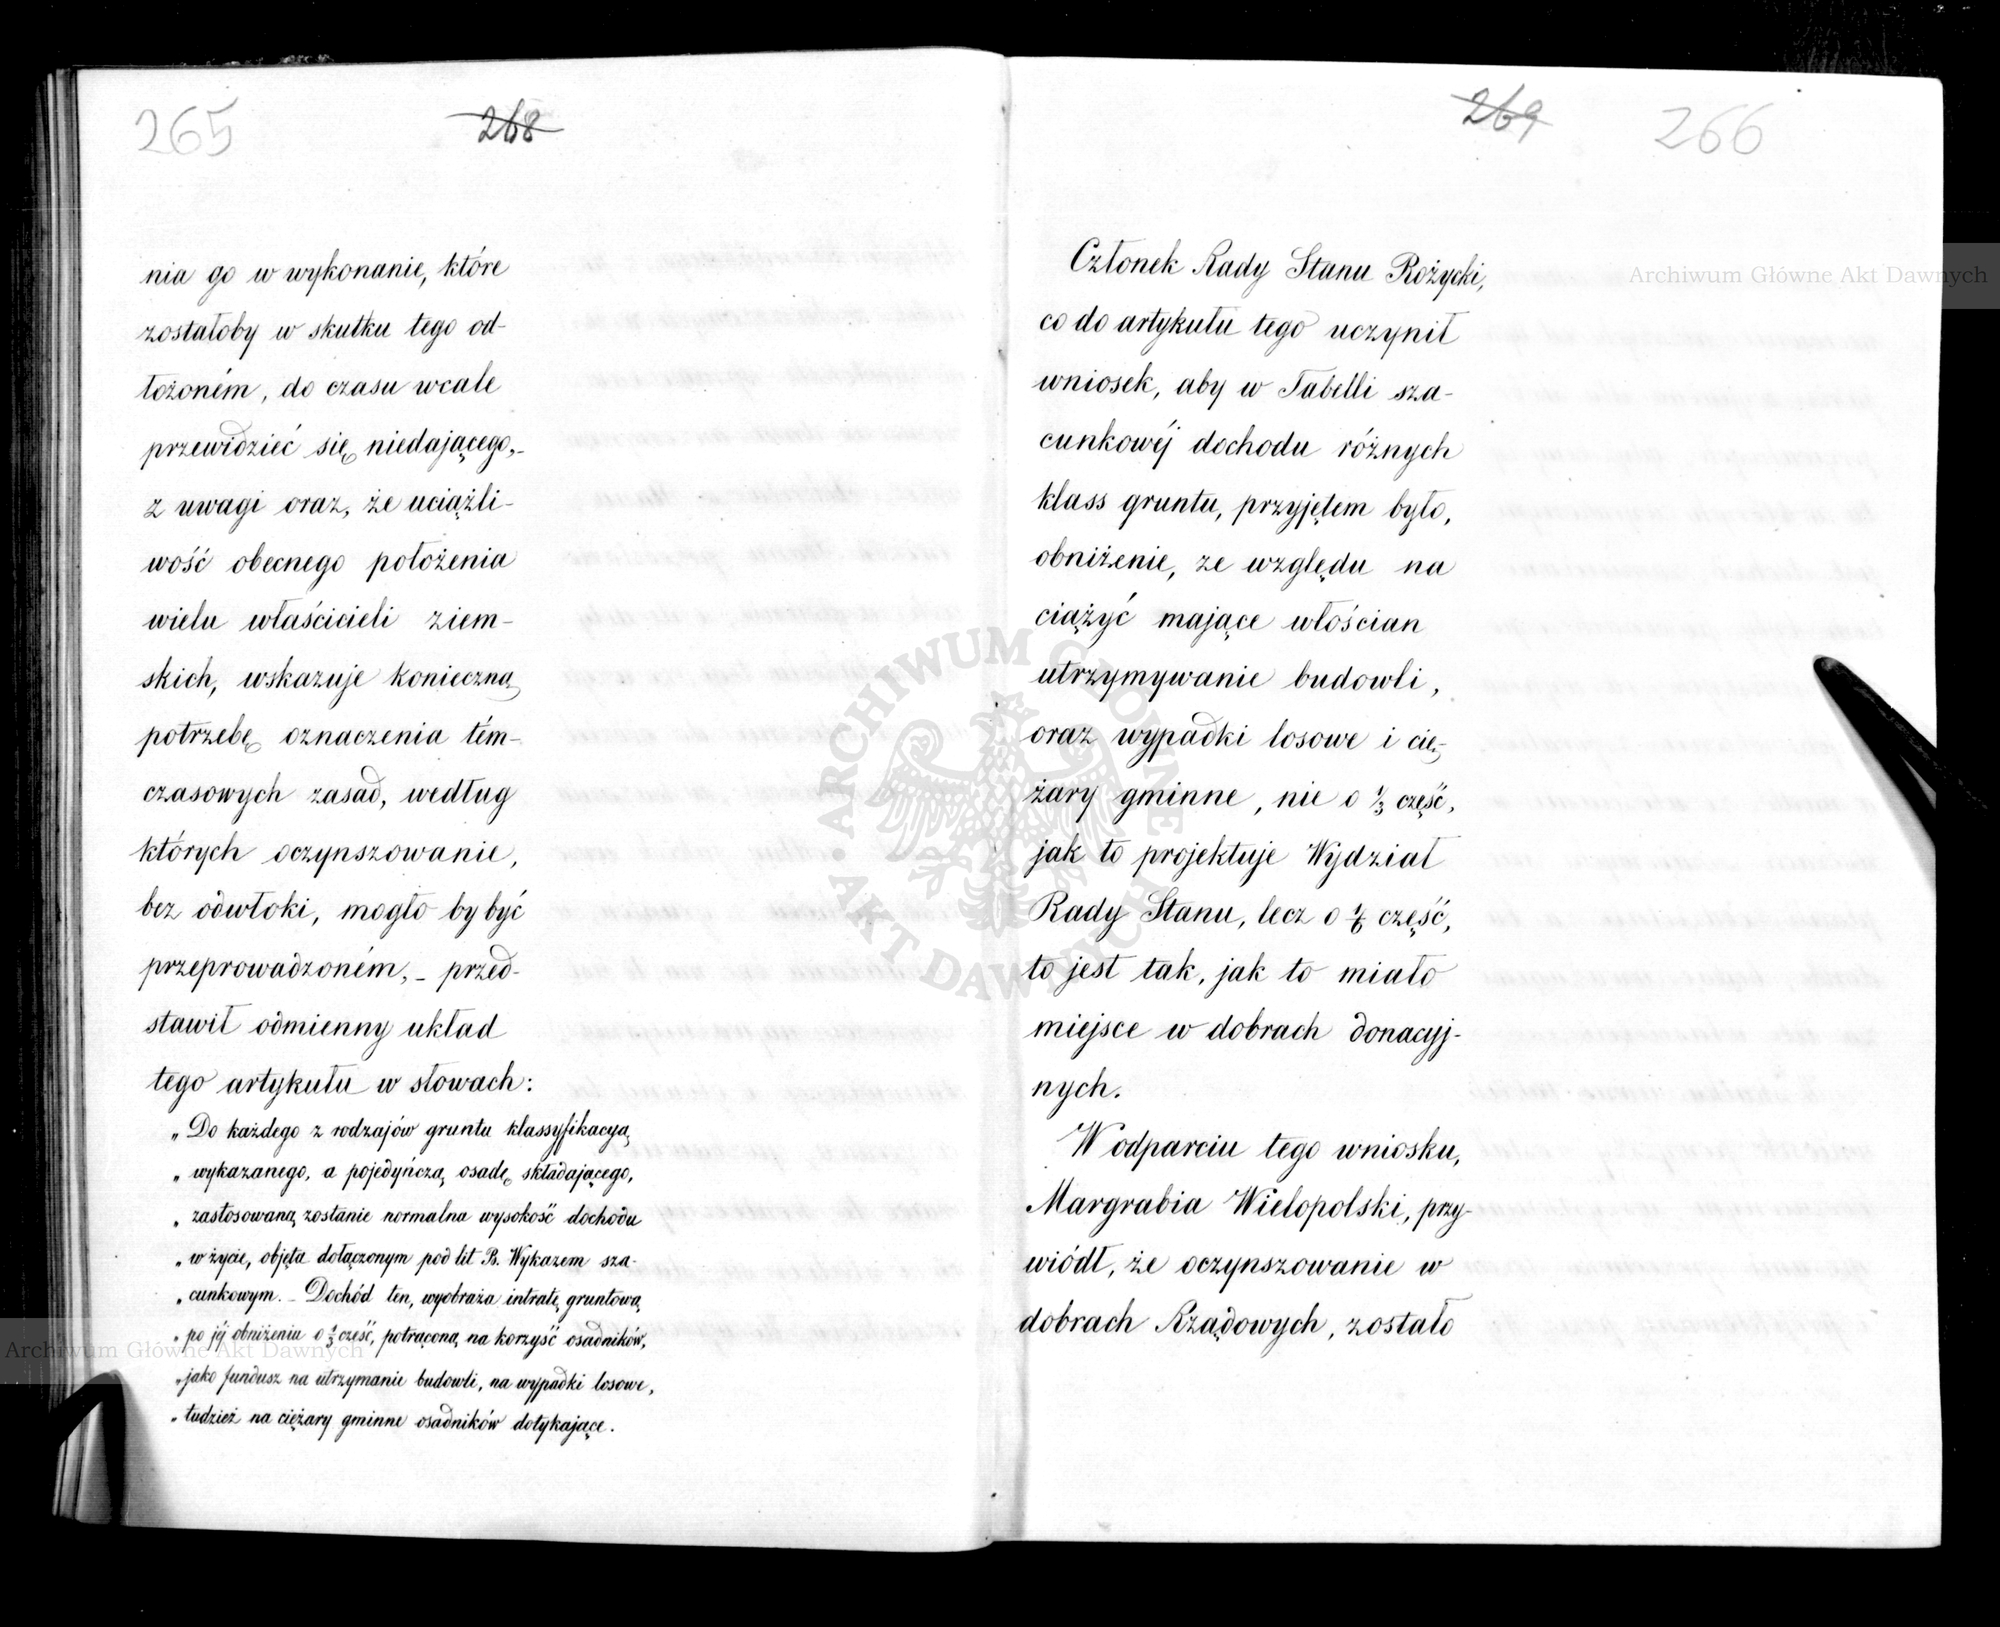 265
268
nia go w wykonanie, które
zostałoby w skutku tego od-
łożoném, do czasu wcale
przewidzieć się niedającego,-
z uwagi oraz, że uciążli-
wość obecnego położenia
wielu właścicieli ziem-
skich, wskazuje konieczną
potrzebę oznaczenia tém-
czasowych zasad, według
których oczynszowanie,
bez odwłoki, mogło by być
przeprowadzoném, - przed-
stawił odmienny układ
tego artykułu w słowach:
„ Do każdego z rodzajów gruntu klassyfikacyą
„ wykazanego, a pojedyńczą osadę składającego,
„ zastosowaną zostanie normalna wysokość dochodu
„ w życie, objęta dołączonym pod lit B. Wykazem sza-
„ cunkowym. - Dochód ten, wyobraża intratę gruntową
„ po jéj obniżeniu o 1/3 część, potrąconą na korzyść osadników,
„ jako fundusz na utrzymanie budowli, na wypadki losowe,
„ tudzież na ciężary gminne osadników dotykające.
269
266
Członek Rady Stanu Rożycki,
co do artykułu tego uczynił
wniosek, aby w Tabelli sza-
cunkowéj dochodu różnych
klass gruntu, przyjętem było,
obniżenie, ze względu na
ciążyć mające włościan
utrzymywanie budowli,
oraz wypadki losowe i cię-
żary gminne, nie o 1/3 część,
jak to projektuje Wydział
Rady Stanu, lecz o 1/6 część,
to jest tak, jak to miało
miejsce w dobrach donacyj-
nych.
W odparciu tego wniosku,
Margrabia Wielopolski, przy-
wiódł, że oczynszowanie w
dobrach Rządowych, zostało
Archiwum Główne Akt Dawnych
Archiwum Główne Akt Dawnych
ARCHIWUM GŁÓWNE AKT DAWNYCH